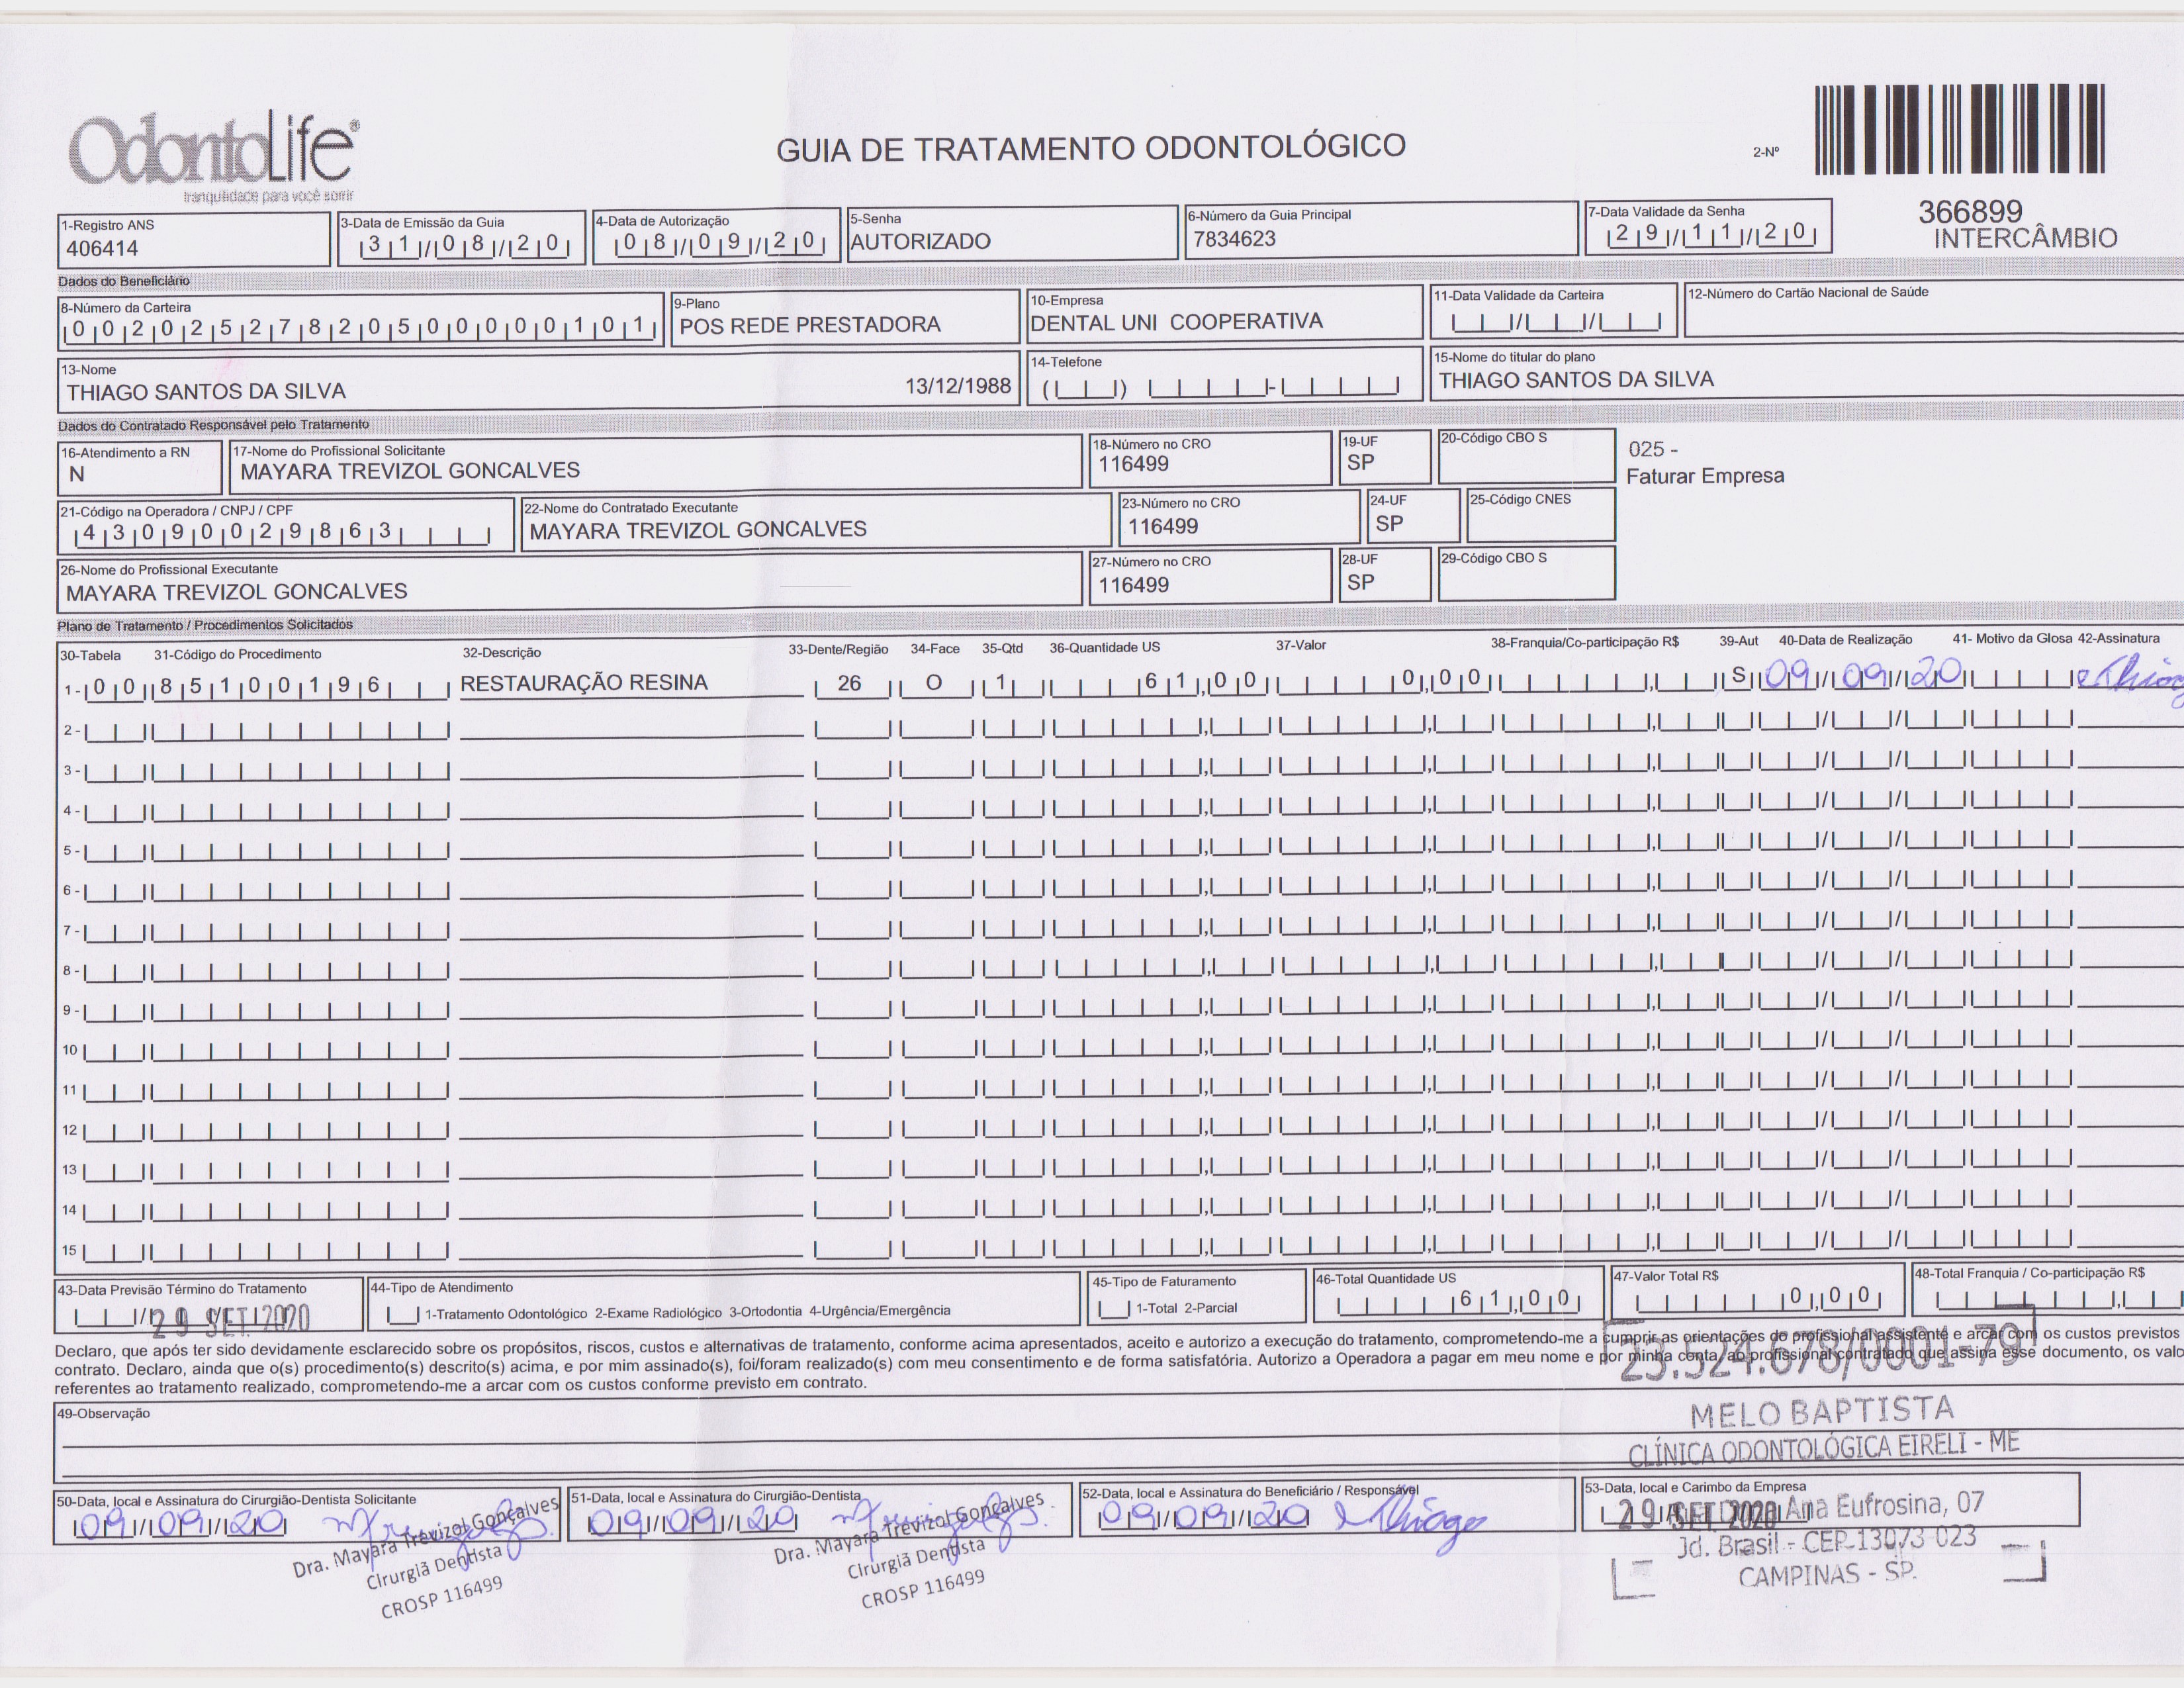 OdontoLife®
tranquilidade para você sorrir
GUIA DE TRATAMENTO ODONTOLÓGICO
2-Nº
366899
INTERCÂMBIO
1-Registro ANS
406414
3-Data de Emissão da Guia
31/08/20
4-Data de Autorização
08/09/20
5-Senha
AUTORIZADO
6-Número da Guia Principal
7834623
7-Data Validade da Senha
29/11/20
Dados do Beneficiário
8-Número da Carteira
00202527820500000101
9-Plano
POS REDE PRESTADORA
10-Empresa
DENTAL UNI COOPERATIVA
11-Data Validade da Carteira
12-Número do Cartão Nacional de Saúde
13-Nome
THIAGO SANTOS DA SILVA 13/12/1988
14-Telefone
15-Nome do titular do plano
THIAGO SANTOS DA SILVA
Dados do Contratado Responsável pelo Tratamento
16-Atendimento a RN
N
17-Nome do Profissional Solicitante
MAYARA TREVIZOL GONCALVES
18-Número no CRO
116499
19-UF
SP
20-Código CBO S
025 -
Faturar Empresa
21-Código na Operadora / CNPJ / CPF
43090029863
22-Nome do Contratado Executante
MAYARA TREVIZOL GONCALVES
23-Número no CRO
116499
24-UF
SP
25-Código CNES
26-Nome do Profissional Executante
MAYARA TREVIZOL GONCALVES
27-Número no CRO
116499
28-UF
SP
29-Código CBO S
Plano de Tratamento / Procedimentos Solicitados
30-Tabela 31-Código do Procedimento 32-Descrição 33-Dente/Região 34-Face 35-Qtd 36-Quantidade US 37-Valor 38-Franquia/Co-participação R$ 39-Aut 40-Data de Realização 41- Motivo da Glosa 42-Assinatura
1- 00 85100196 RESTAURAÇÃO RESINA 26 O 1 61,00 0,00 S 09/09/20 Thiago
2-
3-
4-
5-
6-
7-
8-
9-
10
11
12
13
14
15
43-Data Previsão Término do Tratamento
29 SET. 2020
44-Tipo de Atendimento
1-Tratamento Odontológico 2-Exame Radiológico 3-Ortodontia 4-Urgência/Emergência
45-Tipo de Faturamento
1-Total 2-Parcial
46-Total Quantidade US
61,00
47-Valor Total R$
0,00
48-Total Franquia / Co-participação R$
Declaro, que após ter sido devidamente esclarecido sobre os propósitos, riscos, custos e alternativas de tratamento, conforme acima apresentados, aceito e autorizo a execução do tratamento, comprometendo-me a cumprir as orientações do profissional assistente e arcar com os custos previstos
contrato. Declaro, ainda que o(s) procedimento(s) descrito(s) acima, e por mim assinado(s), foi/foram realizado(s) com meu consentimento e de forma satisfatória. Autorizo a Operadora a pagar em meu nome e por minha conta, ao profissional contratado que assina esse documento, os valo
referentes ao tratamento realizado, comprometendo-me a arcar com os custos conforme previsto em contrato.
23.524.678/0001-79
49-Observação
MELO BAPTISTA
CLÍNICA ODONTOLÓGICA EIRELI - ME
50-Data, local e Assinatura do Cirurgião-Dentista Solicitante
09/09/20
Dra. Mayara Trevizol Gonçalves
Cirurgiã Dentista
CROSP 116499
51-Data, local e Assinatura do Cirurgião-Dentista
09/09/20
Dra. Mayara Trevizol Gonçalves
Cirurgiã Dentista
CROSP 116499
52-Data, local e Assinatura do Beneficiário / Responsável
09/09/20 Thiago
53-Data, local e Carimbo da Empresa
29 SET. 2020
Ana Eufrosina, 07
Jd. Brasil - CEP-13073-023
CAMPINAS - SP.